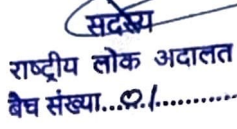 सदस्य
राष्ट्रीय लोक अदालत
बैच संख्या...01............